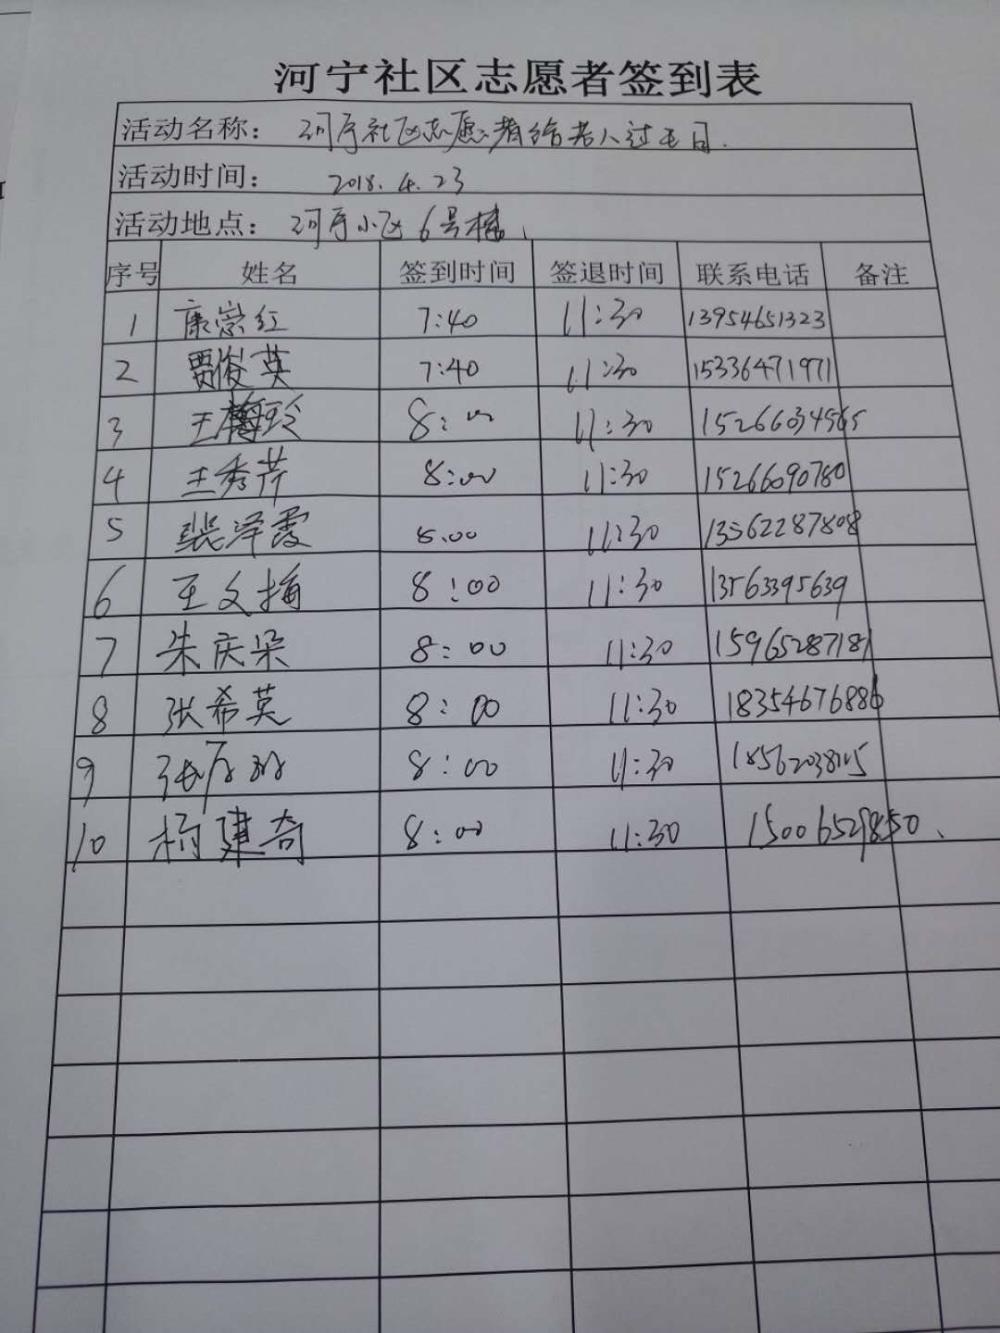 河宁社区志愿者签到表
活动名称： 河宁社区志愿者给老人过生日.
活动时间： 2018.4.23
活动地点： 河宁小区6号楼
序号 姓名 签到时间 签退时间 联系电话 备注
1 康崇红 7:40 11:30 13954651323
2 贾俊英 7:40 11:30 15336471971
3 王梅玲 8:00 11:30 15266034565
4 王秀芹 8:00 11:30 15266090780
5 裴泽霞 8.00 11:30 13562287808
6 王文梅 8:00 11:30 13563395639
7 朱庆朵 8:00 11:30 15965287181
8 张希英 8:00 11:30 18354676886
9 8:00 11:30
10 杨建奇 8:00 11:30 15006529850、